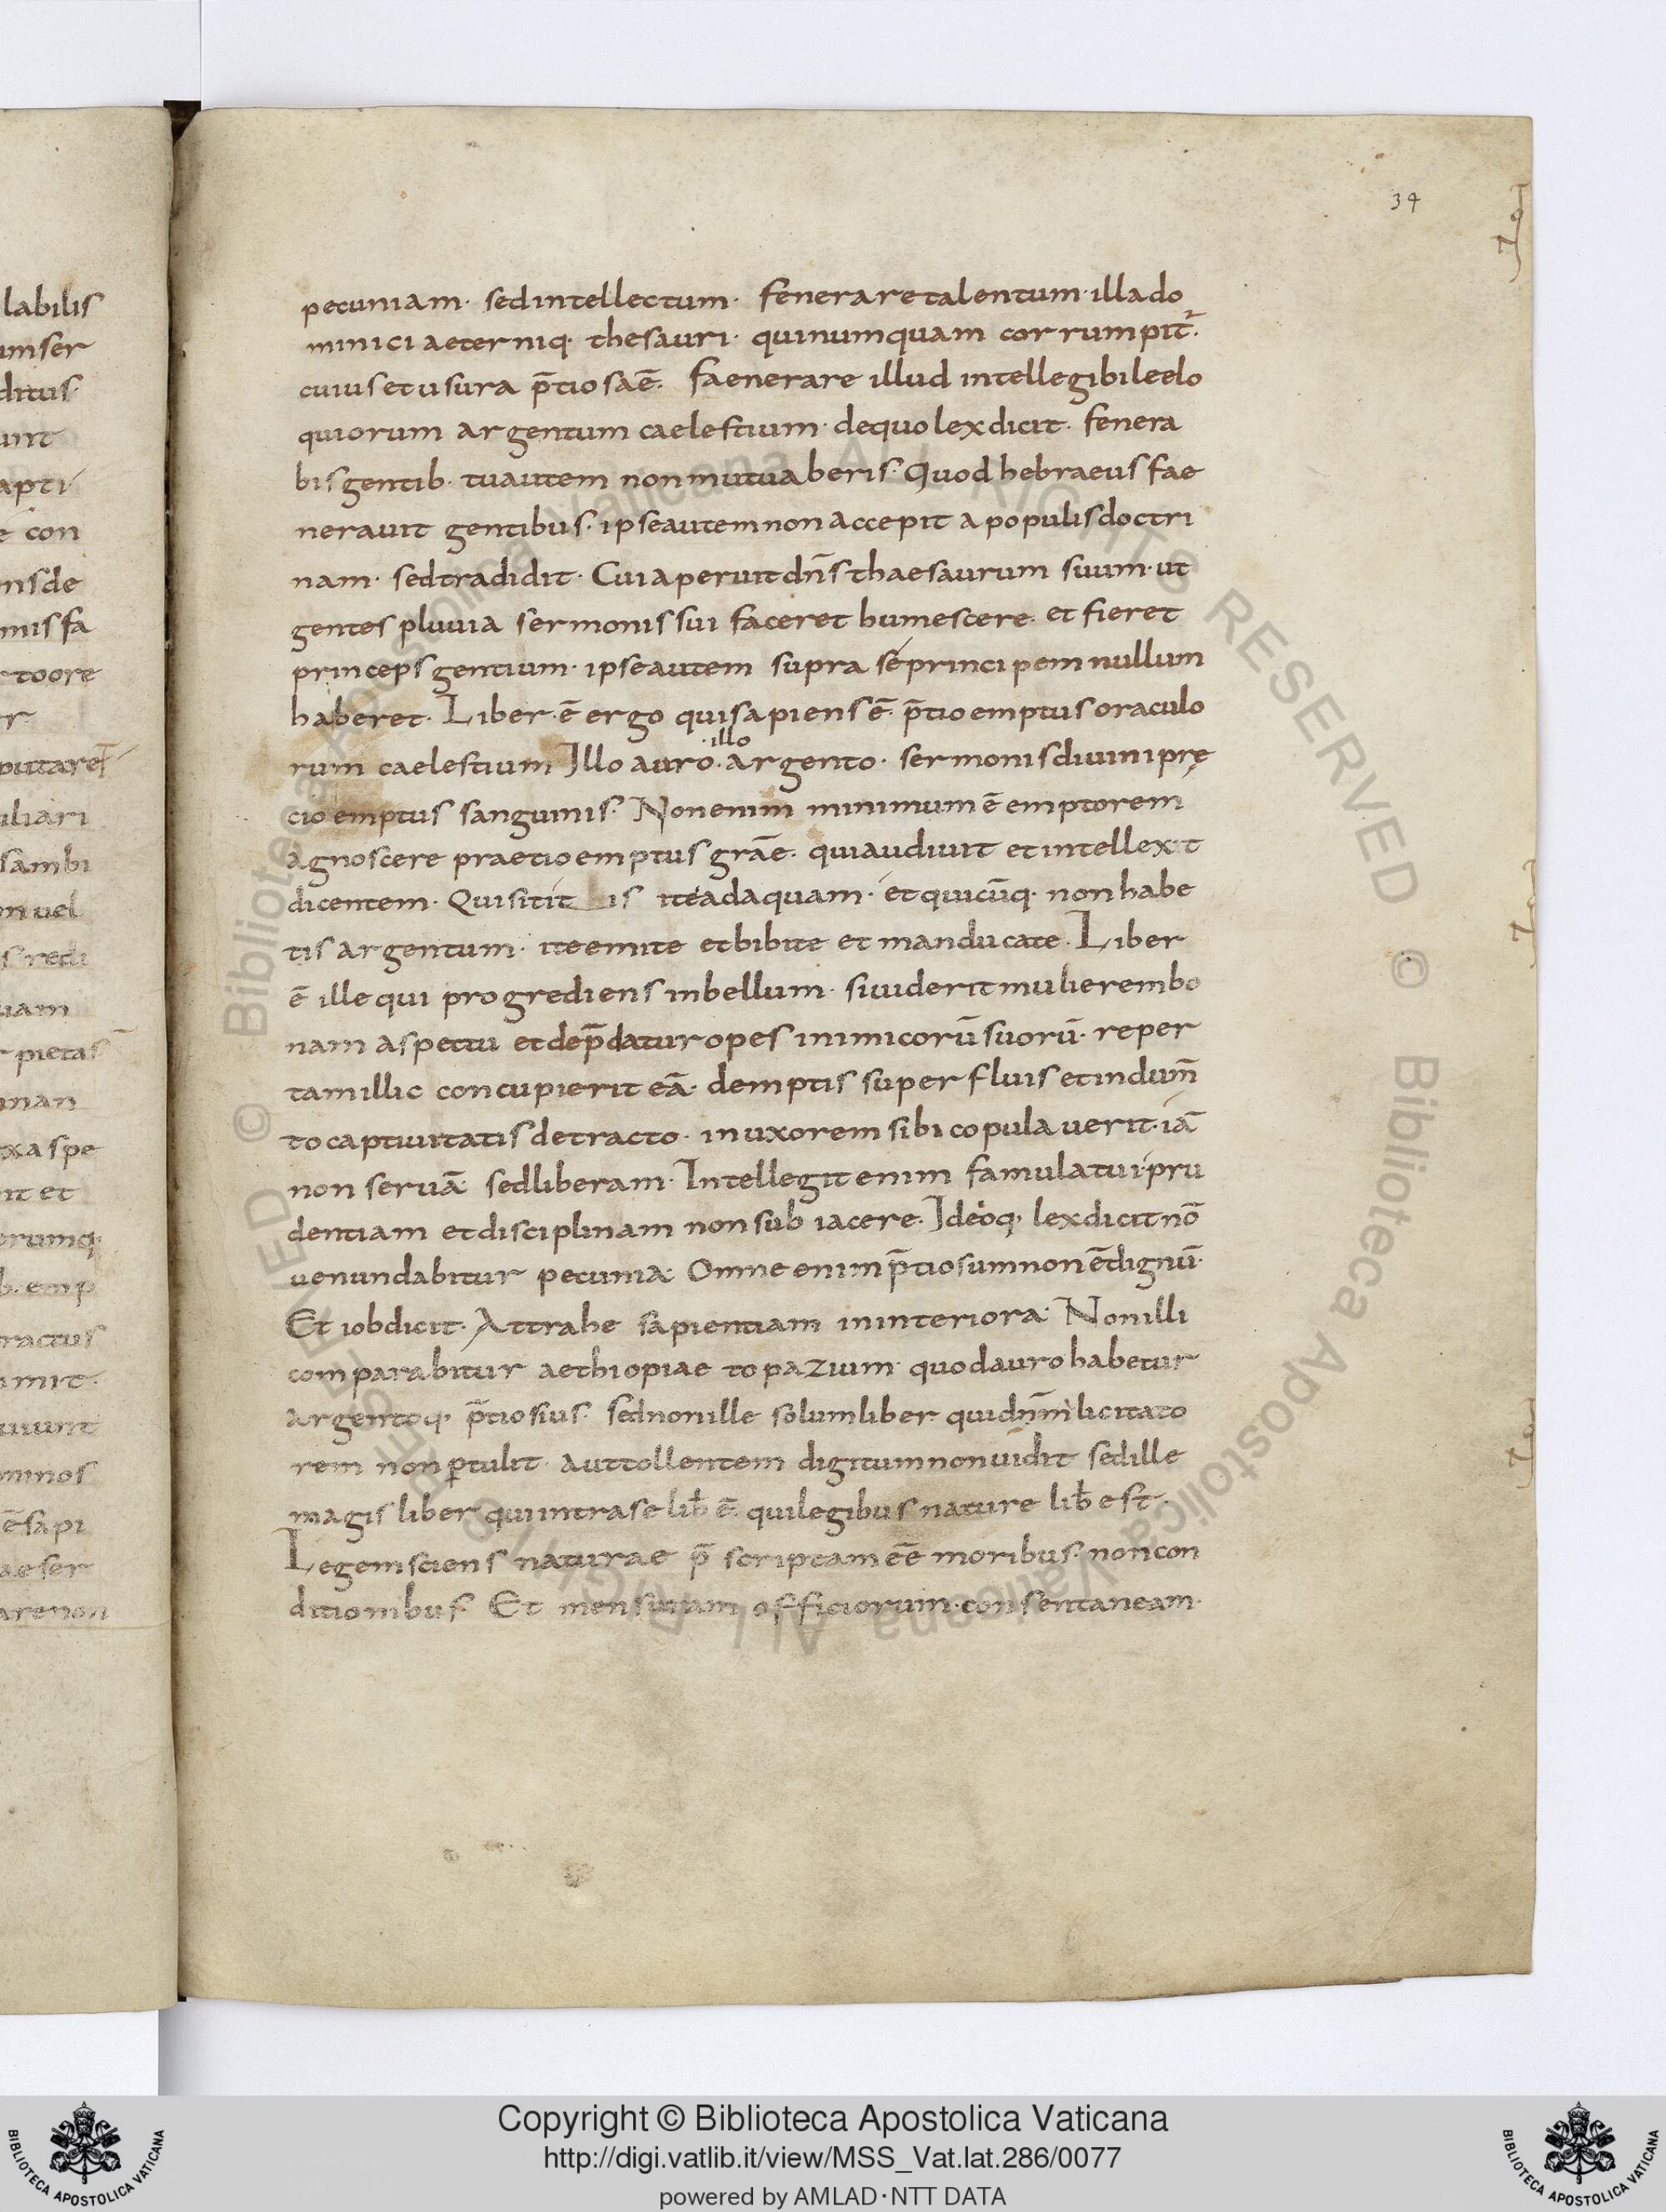 34
pecuniam· sed intellectum· fenerare talentum· illa do
minici aeterniq· thesauri· qui numquam corrumpit᷑·
cuius et usura p̄tiosa ē· faenerare illud intellegibile elo
quiorum argentum caelestium· de quo lex dicit· fenera
bis gentib· tu autem non mutuaberis· Quod hebraeus fae
nerauit gentibus· ipse autem non accepit a populis doctri
nam· sed tradidit· Cui aperuit dn̄s thaesaurum suum· ut
gentes pluuia sermonis sui faceret humescere· et fieret
princeps gentium· ipse autem supra sé principem nullum
haberet· Liber· ē ergo qui sapiens ē· p̄tio emptus oraculo
rum caelestium Illo auro· illo argento· sermonis diuini prę
cio emptus sanguinis· Non enim minimum ē emptorem
agnoscere praetio emptus grāe· qui audiuit et intellexit
dicentem· Qui sitit is ite ad aquam· et quicūq· non habe
tis argentum· ite emite et bibite et manducate· Liber
ē ille qui progrediens in bellum· si uiderit mulierem bo
nam aspectu et dep̄datur opes inimicorū suorū· reper
tam illic concupierit eā· demptis superfluis et indum̄
to captiuitatis detracto· in uxorem sibi copulauerit· iā
non seruā· sed liberam· Intellegit enim famulatui· pru
dentiam et disciplinam non subiacere· Ideoq· lex dicit nō
uenundabitur pecunia· Omne enim p̄tiosum non ē dignū·
Et iob dicit· Attrahe sapientiam in interiora· Non illi
comparabitur aethiopiae topazium· quod auro habetur
argentoq· p̄tiosius· sed non ille solum liber qui dn̄m licitato
rem non ꝑtulit· aut tollentem digitum non uidit sed ille
magis liber qui intra se lib̄ ē· qui legibus nature lib̄ est·
Legem sciens naturae p̄scriptam eē moribus· non con
ditionibus Et mensuram officiorum· consentaneam·
Copyright © Biblioteca Apostolica Vaticana
http://digi.vatlib.it/view/MSS_Vat.lat.286/0077
powered by AMLAD·NTT DATA